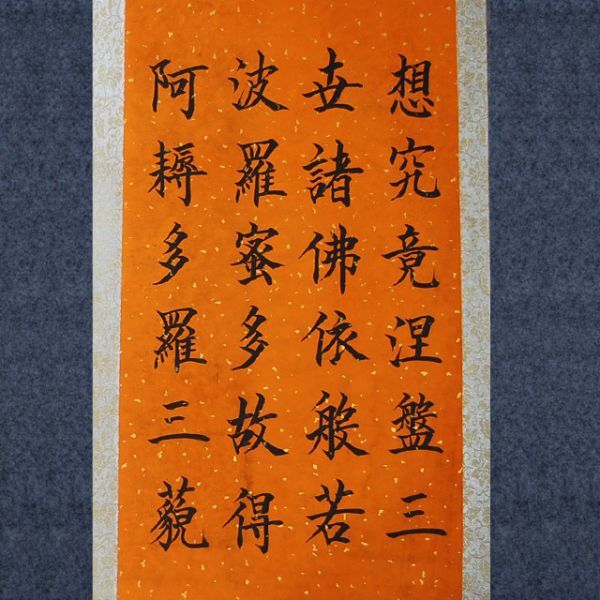 想究竟涅盤三
世諸佛依般若
波羅蜜多故得
阿耨多羅三藐